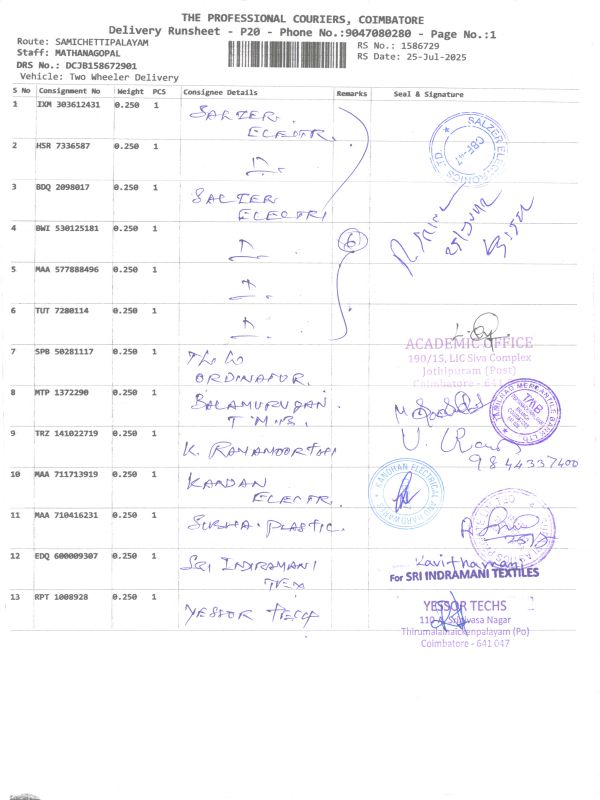 THE PROFESSIONAL COURIERS, COIMBATORE
Delivery Runsheet - P20 - Phone No.:9047080280 - Page No.:1
Route: SAMICHETTIPALAYAM
Staff: MATHANAGOPAL
DRS No.: DCJB158672901
Vehicle: Two Wheeler Delivery
RS No.: 1586729
RS Date: 25-Jul-2025
S No Consignment No Weight PCS Consignee Details Remarks Seal & Signature
1 IXM 303612431 0.250 1 SALZER ELECTR.
SALZER ELECTRONICS LTD
CBE-47
2 HSR 7336587 0.250 1
3 BDQ 2098017 0.250 1 SALZER ELECTRI
4 BWI 530125181 0.250 1
6
5 MAA 577888496 0.250 1
6 TUT 7280114 0.250 1
7 SPB 50281117 0.250 1 ORDINATOR.
ACADEMIC OFFICE
190/15, LIC Siva Complex
Jothipuram (Post)
Coimbatore - 641
8 MTP 1372290 0.250 1 BALAMURUGAN T.M.B.
TAMILNAD MERCANTILE BANK LTD
TMB
9 TRZ 141022719 0.250 1 K. RAMAMOORTHI
9844337400
10 MAA 711713919 0.250 1 KANDAN ELECTR.
KANDHAN ELECTRICAL AND HARDWARES
11 MAA 710416231 0.250 1 SUBHA. PLASTIC.
12 EDQ 600009307 0.250 1 SRI INDRAMANI TEX
Kavithamani
For SRI INDRAMANI TEXTILES
13 RPT 1008928 0.250 1 YESSOR TECH
YESSOR TECHS
110-A, Srinivasa Nagar
Thirumalainaickenpalayam (Po)
Coimbatore - 641 047